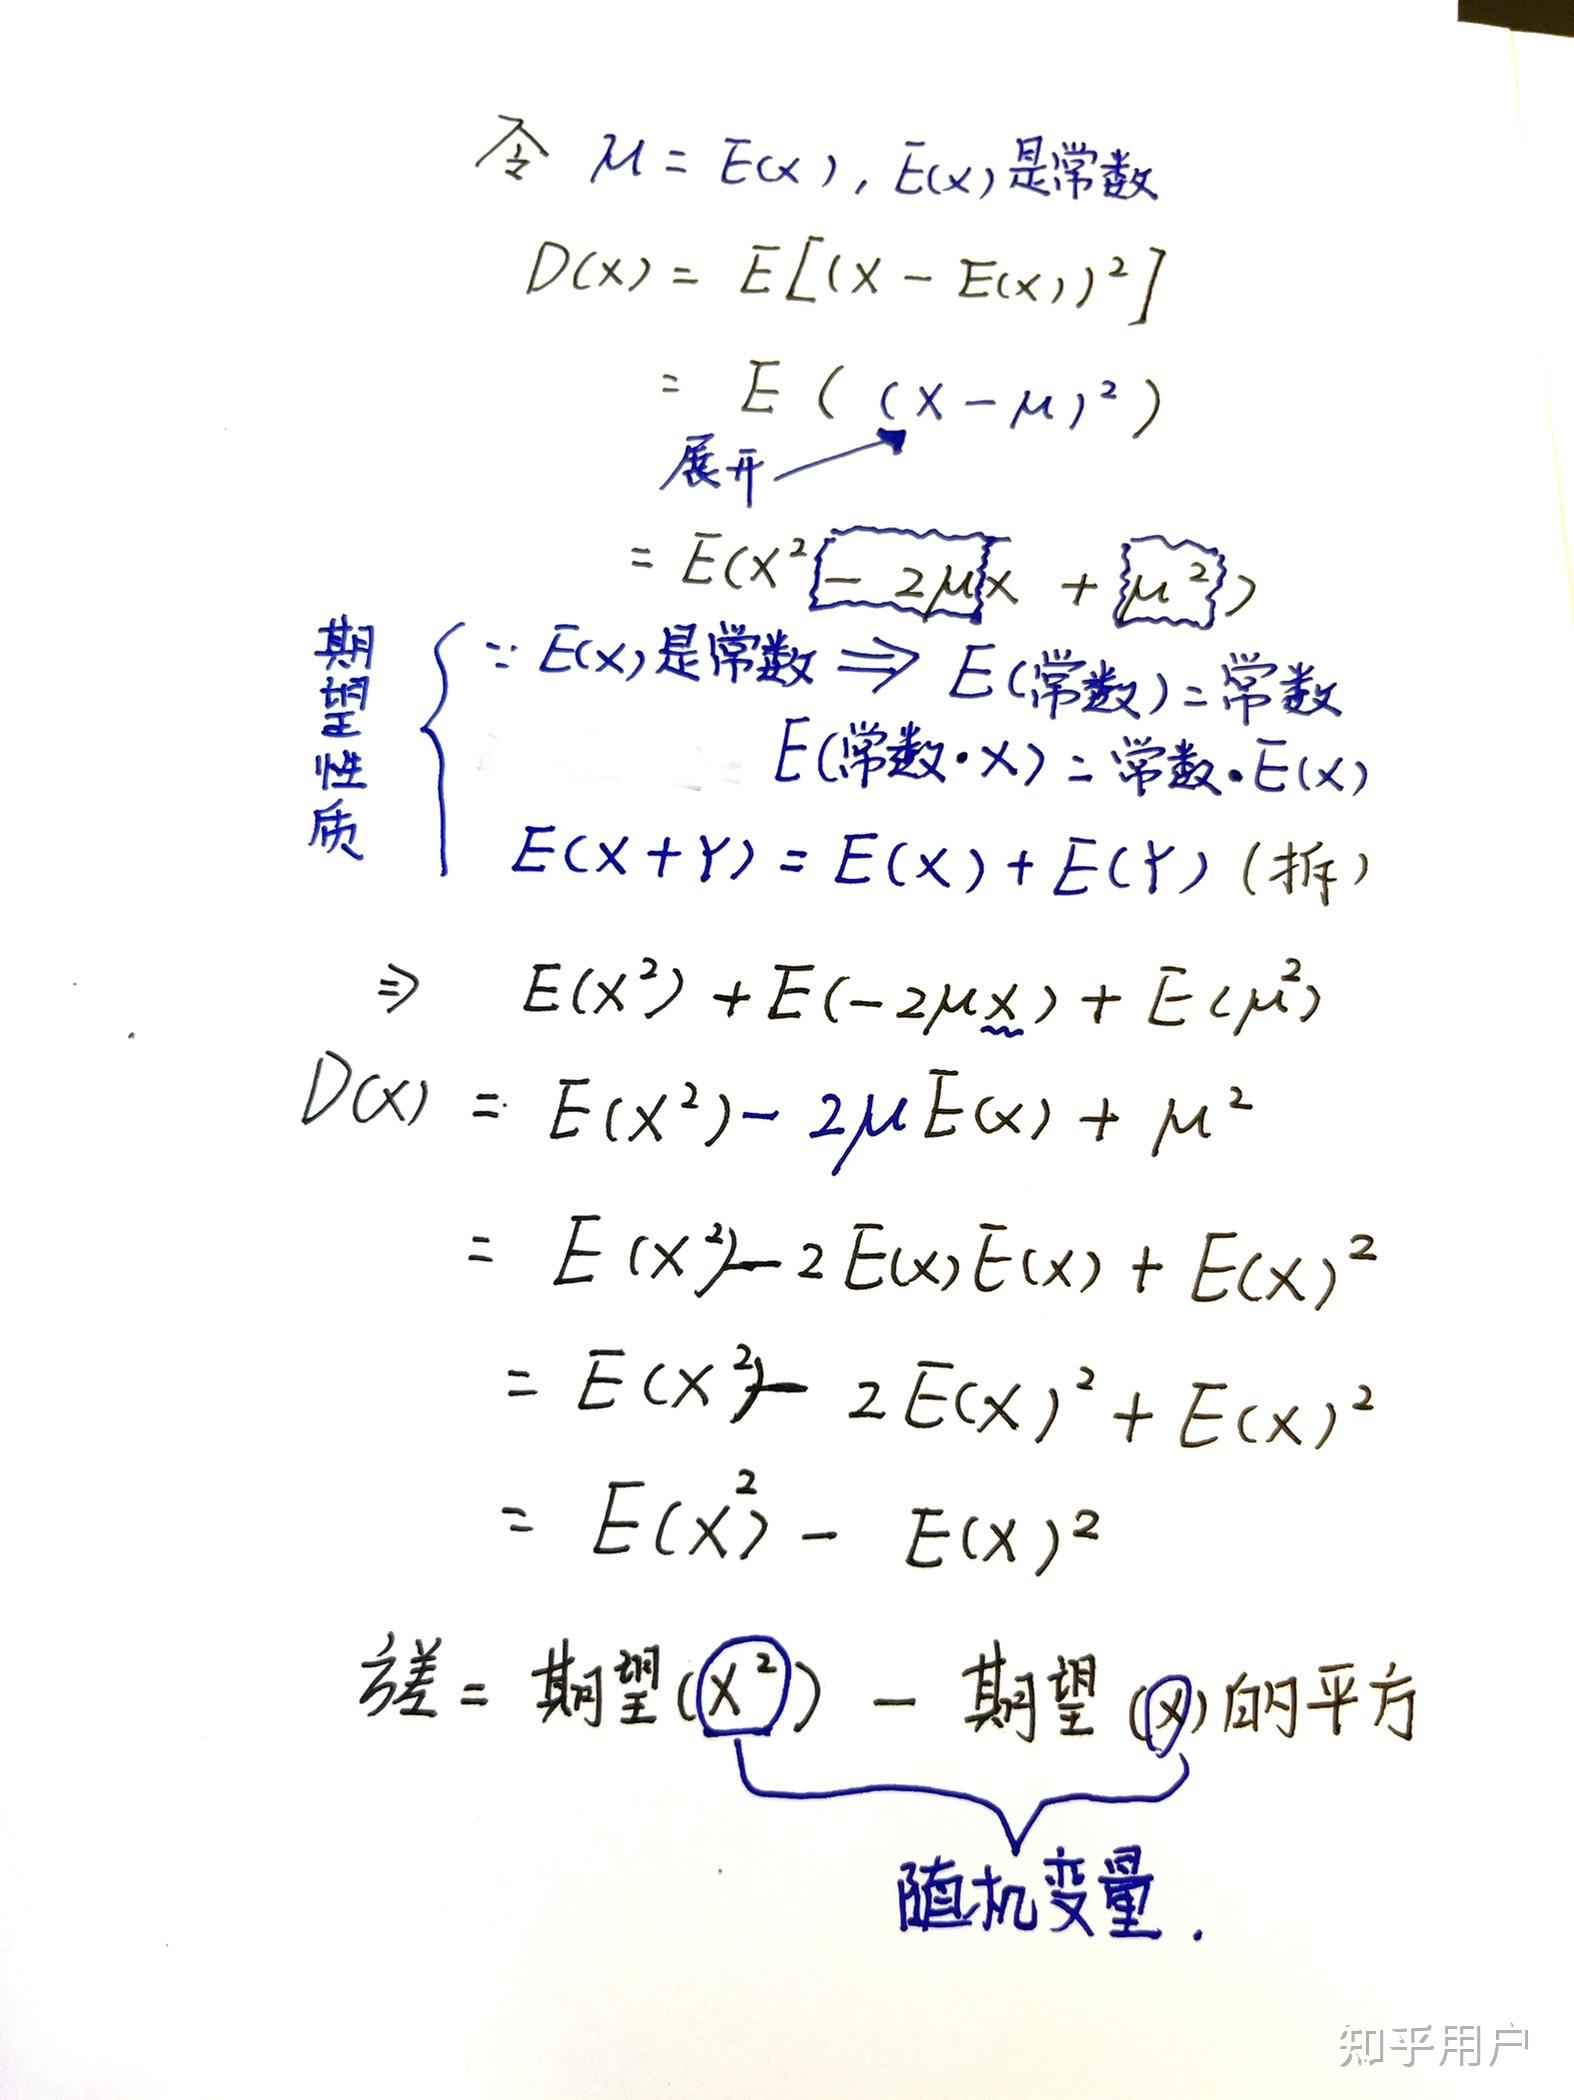 令 μ = E(X), E(X)是常数
D(X) = E[(X - E(X))²]
= E((X-μ)²)
展开
= E(X² - 2μX + μ²)
期望性质
∵ E(X)是常数 ⇒ E(常数)=常数
E(常数·X)=常数·E(X)
E(X+Y)=E(X)+E(Y)(拆)
⇒ E(X²)+E(-2μX)+E(μ²)
D(X) = E(X²)-2μE(X)+μ²
= E(X²)-2E(X)E(X)+E(X)²
= E(X²)-2E(X)²+E(X)²
= E(X²)-E(X)²
方差=期望(X²)-期望(X)的平方
随机变量.
知乎用户